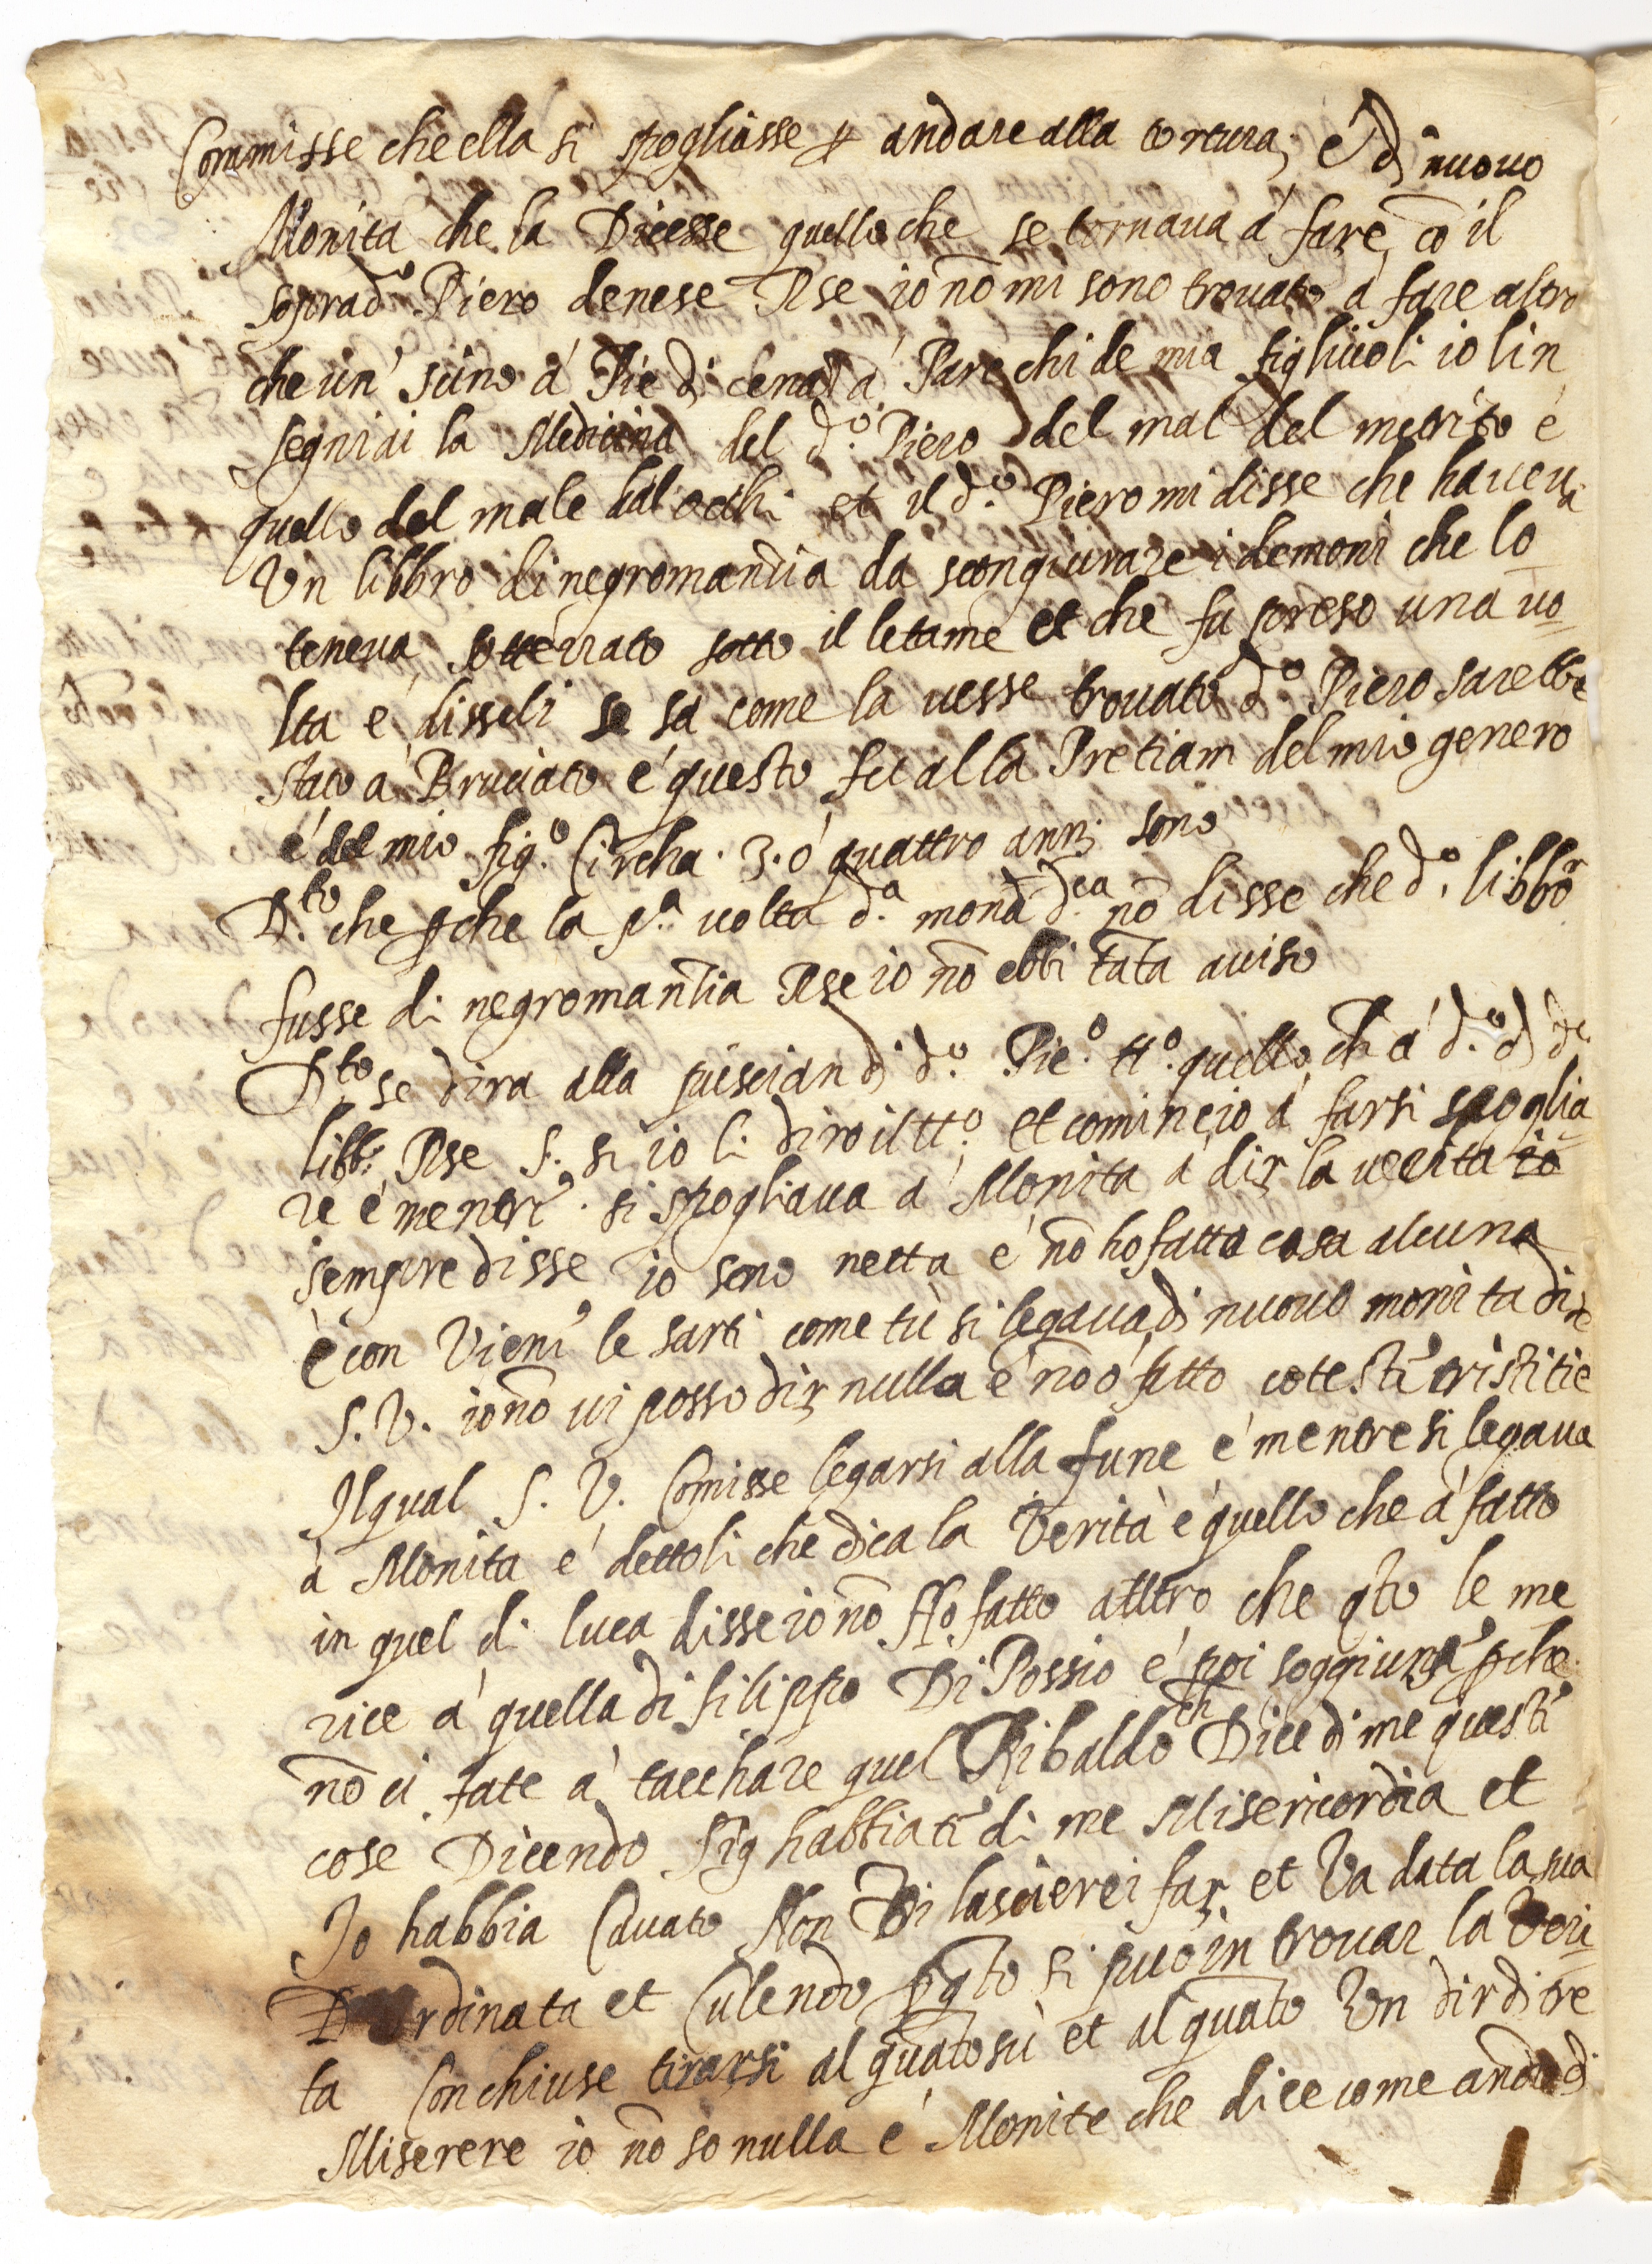 Commisse che ella si spogliasse p andare alla tortura, e di nuouo
Monita che la Dicesse quello che se tornaua á fare cō il
soprad.º Piero denese Rse io nō mi sono trouato á fare altro
che un' á Pie di á Parechi de mia figliuoli io lin
segniai la Medicina del d.º Piero del mal del e
quello del male dal occhi et il d.º Piero mi disse che haueua
Un libbro di negromantia da scongiurare i demoni che lo
teneua sotterrato sotto il letame et che fu preso una uo=
lta e disseli se sa come la uesse trouato d.º Piero sarebbe
stato á Bruciato é questo fu alla del mio genero
é del mio fig.º Circha · 3 · ó quattro anni sono
D.to che pche la p.a uolta d.a mona nō disse che d.º libbro
fusse di negromantia Rse io nō ebbi tata auiso
D.to se dira alla d.º Pie.º tt.º quello ch á d.º di d.º
libb: Rse S. si io li diro il tt.º et comincio á farsi spoglia=
re é mentr' si spogliaua á Monita á dir la uerita
sempre disse io sono netta é nō ho fatto cosa alcuna
é con le sarti come tù si legaua di nuouo monita dire
S. V. io nō ui posso dir nulla é nō ó fatto coteste tristitie
Il qual S. V. Comisse legarsi alla fune é mentre si legaua
á Monita é dettoli che dica la Verità é quello che á fatto
in quel di luca disse io nō Hó fatto alltro che qto le me
rice á quella di filippo Di Possio é poi soggiuns' pche
nō ci fate á tacchare quel Ribaldo ch Dice di me questi
cose Dicendo Sig habbiati di me Misericordia et
Io habbia Non Vi lascierei far et Va data la sua
rdinata et Vlendo p qto si può in trouar la Veri=
ta Conchiuse tirarsi al quāto sù et al quāto Vn dir di tre
Miserere io nō so nulla é Monite che dice come andò di